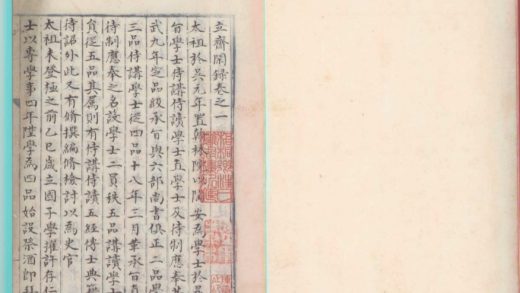 立齋閑錄卷之一
太祖於吳元年置翰林院以陶安為學士於
旨學士侍講侍讀學士直學士及待制應奉
武九年定品級承旨與六部尚書俱正二品學
三品侍講學士從四品十八年三月革承旨直
待制應奉之名設學士二員秩五品講讀學
貟從五品其属則有侍講侍讀五經博士典
待詔外此又有脩撰編脩檢討以為史官
太祖未登極之前乙巳歲立國子學擢許存仁
士以專學事四年陞學為四品始設祭酒即